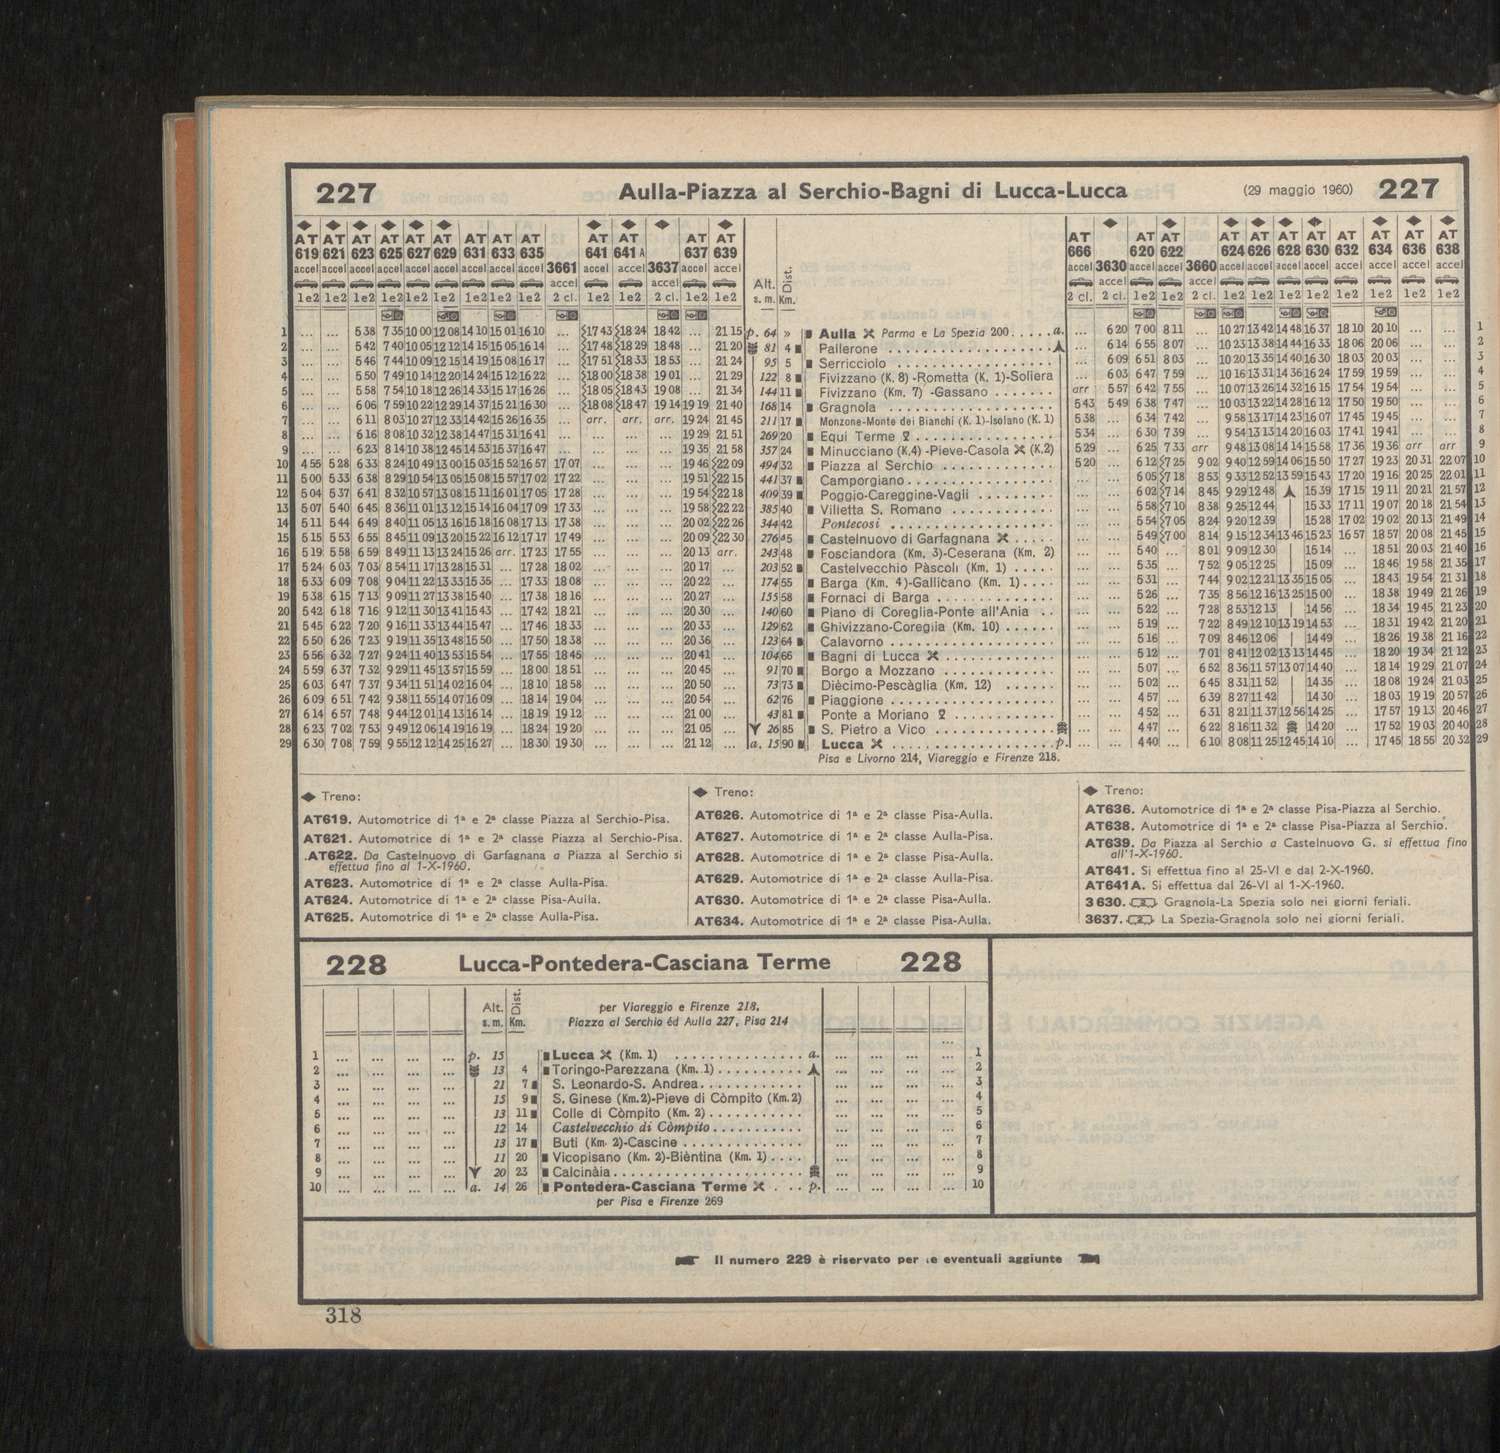 227 Aulla-Piazza al Serchio-Bagni di Lucca-Lucca (29 maggio 1960) 227
AT 619 AT 621 AT 623 AT 625 AT 627 AT 629 AT 631 AT 633 AT 635 3661 AT 641 AT 641 A 3637 AT 637 AT 639 Alt. s. m. Dist. Km. AT 666 3630 AT 620 AT 622 3660 AT 624 AT 626 AT 628 AT 630 AT 632 AT 634 AT 636 AT 638
1 ... ... 5 38 7 35 10 00 12 08 14 10 15 01 16 10 ... 17 43 18 24 18 42 ... 21 15 p. 64 » Aulla Parma e La Spezia 200 a. ... 6 20 7 00 8 11 ... 10 27 13 42 14 48 16 37 18 10 20 10 ... ... 1
2 ... ... 5 42 7 40 10 05 12 12 14 15 15 05 16 14 ... 17 48 18 29 18 48 ... 21 20 81 4 Pallerone ... 6 14 6 55 8 07 ... 10 23 13 38 14 44 16 33 18 06 20 06 ... ... 2
3 ... ... 5 46 7 44 10 09 12 15 14 19 15 08 16 17 ... 17 51 18 33 18 53 ... 21 24 95 5 Serricciolo ... 6 09 6 51 8 03 ... 10 20 13 35 14 40 16 30 18 03 20 03 ... ... 3
4 ... ... 5 50 7 49 10 14 12 20 14 24 15 12 16 22 ... 18 00 18 38 19 01 ... 21 29 122 8 Fivizzano (K. 8) -Rometta (K. 1)-Soliera ... 6 03 6 47 7 59 ... 10 16 13 31 14 36 16 24 17 59 19 59 ... ... 4
5 ... ... 5 58 7 54 10 18 12 26 14 33 15 17 16 26 ... 18 05 18 43 19 08 ... 21 34 144 11 Fivizzano (Km. 7) -Gassano arr 5 57 6 42 7 55 ... 10 07 13 26 14 32 16 15 17 54 19 54 ... ... 5
6 ... ... 6 06 7 59 10 22 12 29 14 37 15 21 16 30 ... 18 08 18 47 19 14 19 19 21 40 168 14 Gragnola 5 43 5 49 6 38 7 47 ... 10 03 13 22 14 28 16 12 17 50 19 50 ... ... 6
7 ... ... 6 11 8 03 10 27 12 33 14 42 15 26 16 35 ... arr. arr. arr. 19 24 21 45 211 17 Monzone-Monte dei Bianchi (K. 1)-Isolano (K. 1) 5 38 ... 6 34 7 42 ... 9 58 13 17 14 23 16 07 17 45 19 45 ... ... 7
8 ... ... 6 16 8 08 10 32 12 38 14 47 15 31 16 41 ... ... ... ... 19 29 21 51 269 20 Equi Terme 5 34 ... 6 30 7 39 ... 9 54 13 13 14 20 16 03 17 41 19 41 ... ... 8
9 ... ... 6 23 8 14 10 38 12 45 14 53 15 37 16 47 ... ... ... ... 19 35 21 58 357 24 Minucciano (K.4) -Pieve-Casola (K.2) 5 29 ... 6 25 7 33 arr 9 48 13 08 14 14 15 58 17 36 19 36 arr arr 9
10 4 55 5 28 6 33 8 24 10 49 13 00 15 03 15 52 16 57 17 07 ... ... ... 19 46 22 09 494 32 Piazza al Serchio 5 20 ... 6 12 7 25 9 02 9 40 12 59 14 06 15 50 17 27 19 23 20 31 22 07 10
11 5 00 5 33 6 38 8 29 10 54 13 05 15 08 15 57 17 02 17 22 ... ... ... 19 51 22 15 441 37 Camporgiano ... ... 6 05 7 18 8 53 9 33 12 52 13 59 15 43 17 20 19 16 20 25 22 01 11
12 5 04 5 37 6 41 8 32 10 57 13 08 15 11 16 01 17 05 17 28 ... ... ... 19 54 22 18 409 39 Poggio-Careggine-Vagli ... ... 6 02 7 14 8 45 9 29 12 48 15 39 17 15 19 11 20 21 21 57 12
13 5 07 5 40 6 45 8 36 11 01 13 12 15 14 16 04 17 09 17 33 ... ... ... 19 58 22 22 385 40 Villetta S. Romano ... ... 5 58 7 10 8 38 9 25 12 44 15 33 17 11 19 07 20 18 21 54 13
14 5 11 5 44 6 49 8 40 11 05 13 16 15 18 16 08 17 13 17 38 ... ... ... 20 02 22 26 344 42 Pontecosi ... ... 5 54 7 05 8 24 9 20 12 39 15 28 17 02 19 02 20 13 21 49 14
15 5 15 5 53 6 55 8 45 11 09 13 20 15 22 16 12 17 17 17 49 ... ... ... 20 09 22 30 276 45 Castelnuovo di Garfagnana ... ... 5 49 7 00 8 14 9 15 12 34 13 46 15 23 16 57 18 57 20 08 21 45 15
16 5 19 5 58 6 59 8 49 11 13 13 24 15 26 arr. 17 23 17 55 ... ... ... 20 13 arr. 243 48 Fosciandora (Km. 3)-Ceserana (Km. 2) ... ... 5 40 ... 8 01 9 09 12 30 15 14 ... 18 51 20 03 21 40 16
17 5 24 6 03 7 03 8 54 11 17 13 28 15 31 ... 17 28 18 02 ... ... ... 20 17 ... 203 52 Castelvecchio Pàscoli (Km. 1) ... ... 5 35 ... 7 52 9 05 12 25 15 09 ... 18 46 19 58 21 35 17
18 5 33 6 09 7 08 9 04 11 22 13 33 15 35 ... 17 33 18 08 ... ... ... 20 22 ... 174 55 Barga (Km. 4)-Gallicano (Km. 1) ... ... 5 31 ... 7 44 9 02 12 21 13 35 15 05 ... 18 43 19 54 21 31 18
19 5 38 6 15 7 13 9 09 11 27 13 38 15 40 ... 17 38 18 16 ... ... ... 20 27 ... 155 58 Fornaci di Barga ... ... 5 26 ... 7 35 8 56 12 16 13 25 15 00 ... 18 38 19 49 21 26 19
20 5 42 6 18 7 16 9 12 11 30 13 41 15 43 ... 17 42 18 21 ... ... ... 20 30 ... 140 60 Piano di Coreglia-Ponte all'Ania ... ... 5 22 ... 7 28 8 53 12 13 14 56 ... 18 34 19 45 21 23 20
21 5 45 6 22 7 20 9 16 11 33 13 44 15 47 ... 17 46 18 33 ... ... ... 20 33 ... 129 62 Ghivizzano-Coreglia (Km. 10) ... ... 5 19 ... 7 22 8 49 12 10 13 19 14 53 ... 18 31 19 42 21 20 21
22 5 50 6 26 7 23 9 19 11 35 13 48 15 50 ... 17 50 18 38 ... ... ... 20 36 ... 123 64 Calavorno ... ... 5 16 ... 7 09 8 46 12 06 14 49 ... 18 26 19 38 21 16 22
23 5 56 6 32 7 27 9 24 11 40 13 53 15 54 ... 17 55 18 45 ... ... ... 20 41 ... 104 66 Bagni di Lucca ... ... 5 12 ... 7 01 8 41 12 02 13 13 14 45 ... 18 20 19 34 21 12 23
24 5 59 6 37 7 32 9 29 11 45 13 57 15 59 ... 18 00 18 51 ... ... ... 20 45 ... 91 70 Borgo a Mozzano ... ... 5 07 ... 6 52 8 36 11 57 13 07 14 40 ... 18 14 19 29 21 07 24
25 6 03 6 47 7 37 9 34 11 51 14 02 16 04 ... 18 10 18 58 ... ... ... 20 50 ... 73 73 Diècimo-Pescàglia (Km. 12) ... ... 5 02 ... 6 45 8 31 11 52 14 35 ... 18 08 19 24 21 03 25
26 6 09 6 51 7 42 9 38 11 55 14 07 16 09 ... 18 14 19 04 ... ... ... 20 54 ... 62 76 Piaggione ... ... 4 57 ... 6 39 8 27 11 42 14 30 ... 18 03 19 19 20 57 26
27 6 14 6 57 7 48 9 44 12 01 14 13 16 14 ... 18 19 19 12 ... ... ... 21 00 ... 43 81 Ponte a Moriano ... ... 4 52 ... 6 31 8 21 11 37 12 56 14 25 ... 17 57 19 13 20 46 27
28 6 23 7 02 7 53 9 49 12 06 14 19 16 19 ... 18 24 19 20 ... ... ... 21 05 ... 26 85 S. Pietro a Vico ... ... 4 47 ... 6 22 8 16 11 32 14 20 ... 17 52 19 03 20 40 28
29 6 30 7 08 7 59 9 55 12 12 14 25 16 27 ... 18 30 19 30 ... ... ... 21 12 ... a. 15 90 Lucca p. ... ... 4 40 ... 6 10 8 08 11 25 12 45 14 10 ... 17 45 18 55 20 32 29
Pisa e Livorno 214, Viareggio e Firenze 218.
Treno:
AT619. Automotrice di 1ª e 2ª classe Piazza al Serchio-Pisa.
AT621. Automotrice di 1ª e 2ª classe Piazza al Serchio-Pisa.
AT622. Da Castelnuovo di Garfagnana a Piazza al Serchio si
effettua fino al 1-X-1960.
AT623. Automotrice di 1ª e 2ª classe Aulla-Pisa.
AT624. Automotrice di 1ª e 2ª classe Pisa-Aulla.
AT625. Automotrice di 1ª e 2ª classe Aulla-Pisa.
Treno:
AT626. Automotrice di 1ª e 2ª classe Pisa-Aulla.
AT627. Automotrice di 1ª e 2ª classe Aulla-Pisa.
AT628. Automotrice di 1ª e 2ª classe Pisa-Aulla.
AT629. Automotrice di 1ª e 2ª classe Aulla-Pisa.
AT630. Automotrice di 1ª e 2ª classe Pisa-Aulla.
AT634. Automotrice di 1ª e 2ª classe Pisa-Aulla.
Treno:
AT636. Automotrice di 1ª e 2ª classe Pisa-Piazza al Serchio.
AT638. Automotrice di 1ª e 2ª classe Pisa-Piazza al Serchio.
AT639. Da Piazza al Serchio a Castelnuovo G. si effettua fino
all'1-X-1960.
AT641. Si effettua fino al 25-VI e dal 2-X-1960.
AT641A. Si effettua dal 26-VI al 1-X-1960.
3630. Gragnola-La Spezia solo nei giorni feriali.
3637. La Spezia-Gragnola solo nei giorni feriali.
228 Lucca-Pontedera-Casciana Terme 228
Alt. s. m. Dist. Km. per Viareggio e Firenze 218,
Piazza al Serchio ed Aulla 227, Pisa 214
1 ... ... ... ... p. 15 Lucca (Km. 1) a. ... ... ... ... 1
2 ... ... ... ... 13 4 Toringo-Parezzana (Km. 1) ... ... ... ... 2
3 ... ... ... ... 21 7 S. Leonardo-S. Andrea ... ... ... ... 3
4 ... ... ... ... 15 9 S. Ginese (Km.2)-Pieve di Còmpito (Km.2) ... ... ... ... 4
5 ... ... ... ... 13 11 Colle di Còmpito (Km. 2) ... ... ... ... 5
6 ... ... ... ... 12 14 Castelvecchio di Còmpito ... ... ... ... 6
7 ... ... ... ... 13 17 Buti (Km. 2)-Cascine ... ... ... ... 7
8 ... ... ... ... 11 20 Vicopisano (Km. 2)-Bièntina (Km. 1) ... ... ... ... 8
9 ... ... ... ... 20 23 Calcinàia ... ... ... ... 9
10 ... ... ... ... a. 14 26 Pontedera-Casciana Terme p. ... ... ... ... 10
per Pisa e Firenze 269
Il numero 229 è riservato per le eventuali aggiunte
318